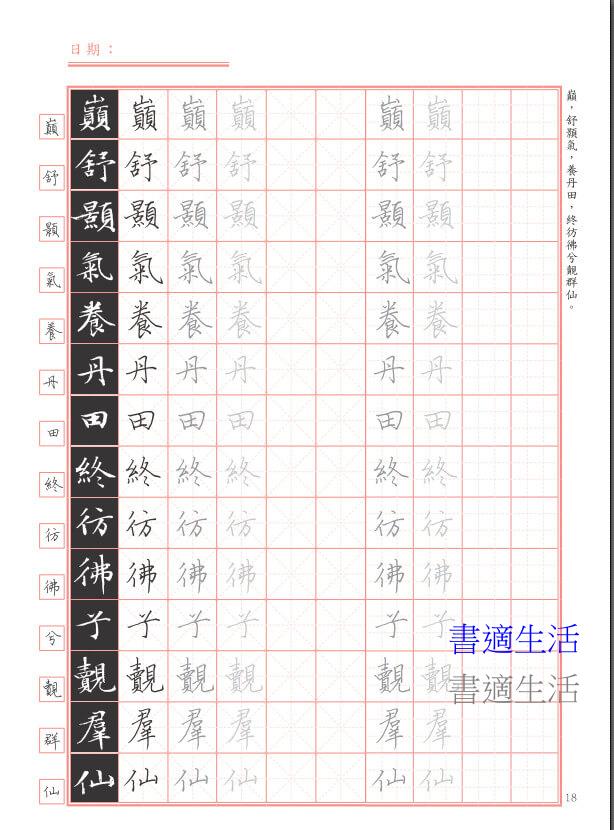 日期：
巔，舒顥氣，養丹田，終彷彿兮覿群仙。
巔 巔 巔 巔 巔 巔 巔
舒 舒 舒 舒 舒 舒 舒
顥 顥 顥 顥 顥 顥 顥
氣 氣 氣 氣 氣 氣 氣
養 養 養 養 養 養 養
丹 丹 丹 丹 丹 丹 丹
田 田 田 田 田 田 田
終 終 終 終 終 終 終
彷 彷 彷 彷 彷 彷 彷
彿 彿 彿 彿 彿 彿 彿
兮 兮 兮 兮 兮 兮 兮
書適生活
覿 覿 覿 覿 覿 覿 覿
書適生活
群 羣 羣 羣 羣 羣 羣
仙 仙 仙 仙 仙 仙 仙
18